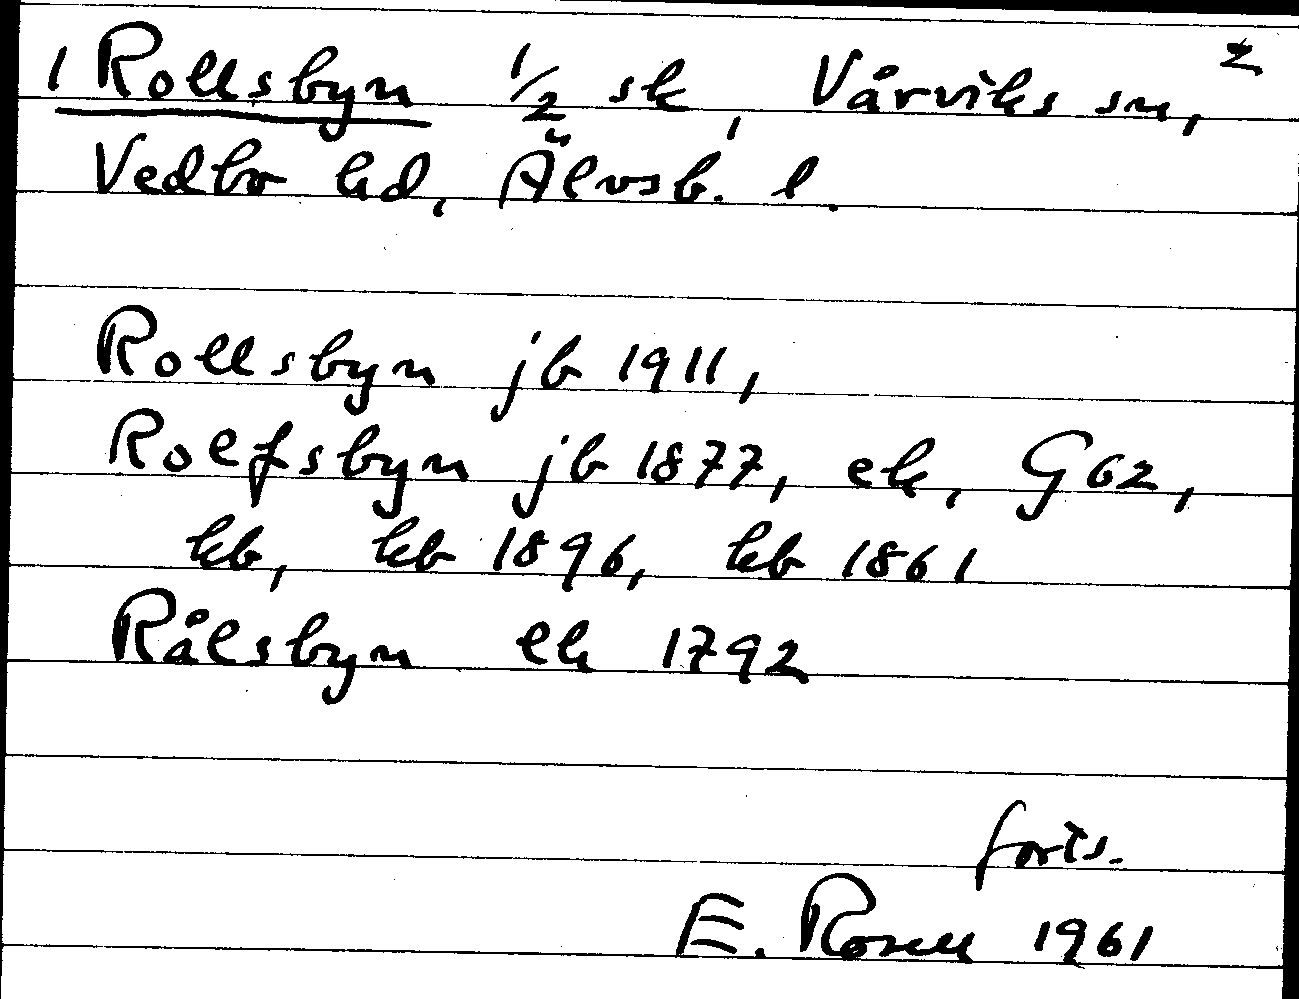 1 Rollsbyn 1/2 sk, Vårviks sn, z
Vedbo hd, Älvsb. l.
Rollsbyn jb 1911,
Rolfsbyn jb 1877, ek, G 62,
kb, kb 1896, kb 1861
Rålsbyn ek 1792
forts.
E. Rosell 1961